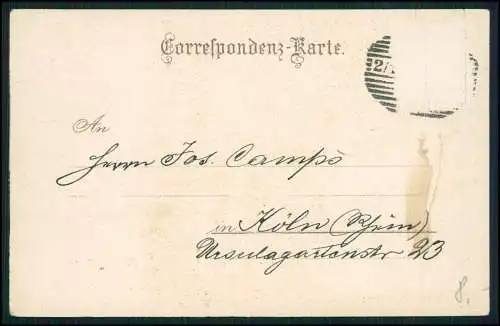 Correspondenz-Karte.
2/
An
Herrn Jos. Camps
in Köln (Rhein)
Ursulagartenstr 23
8.